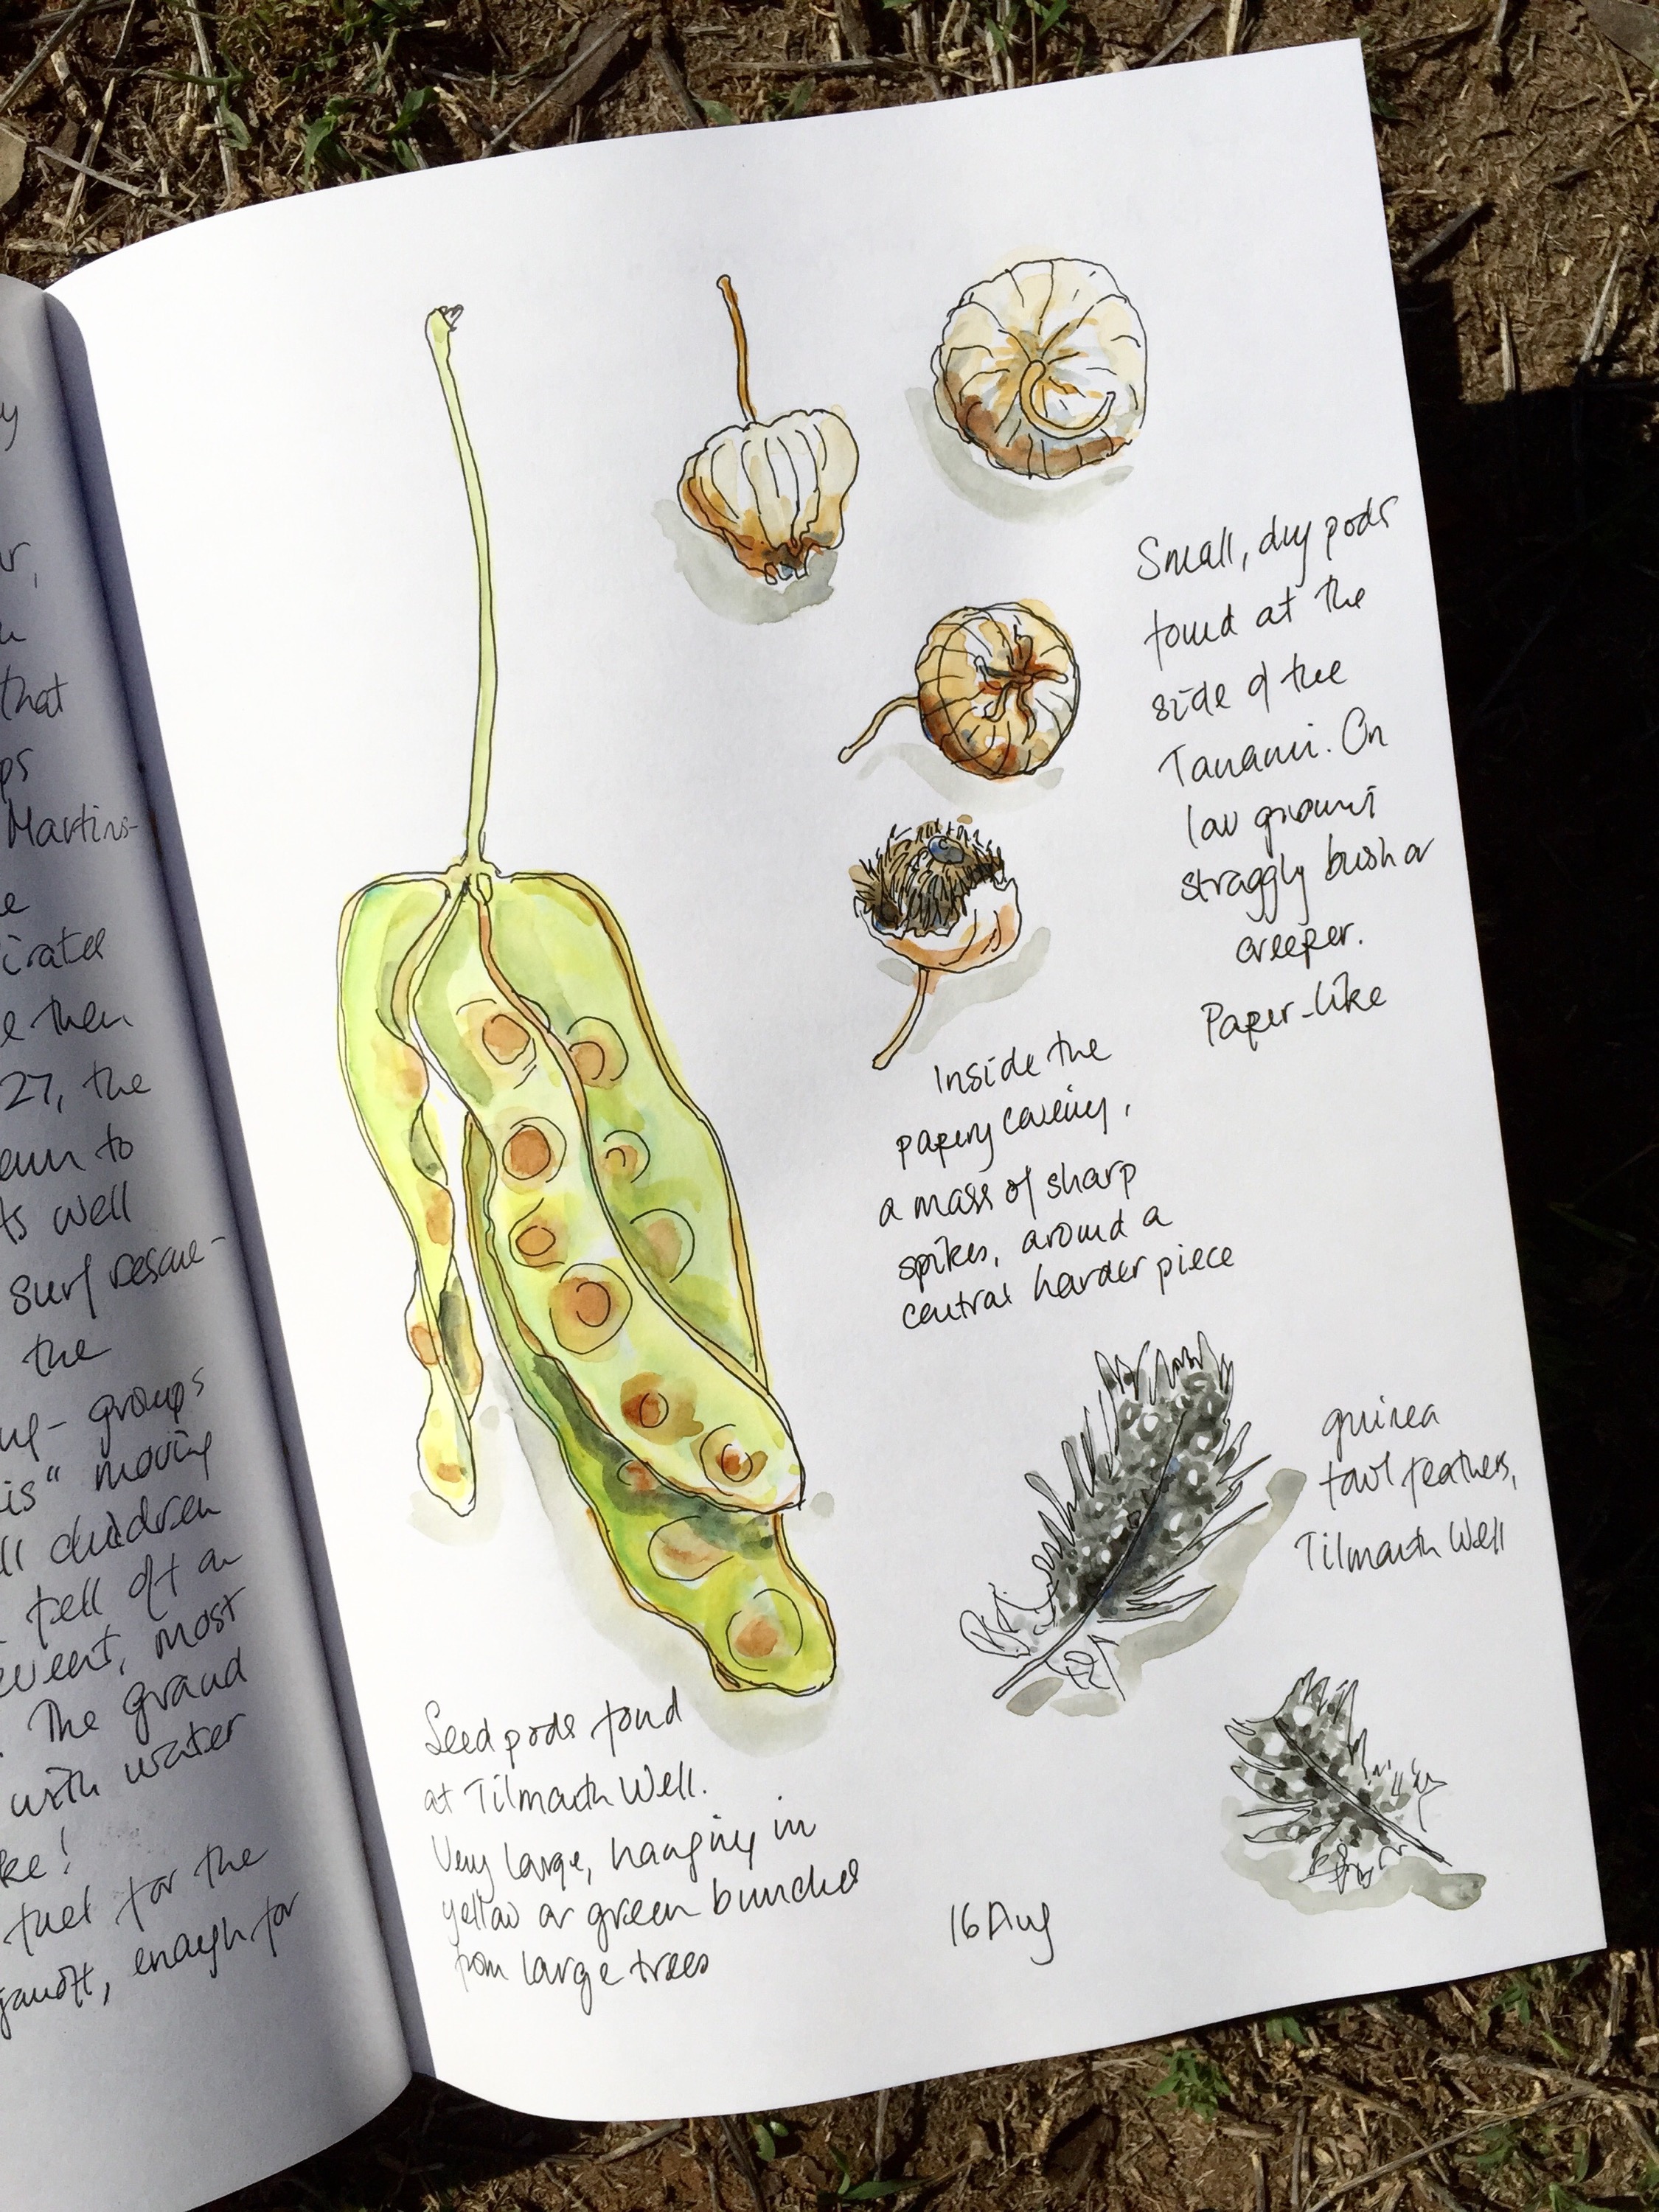 that
Martins-
then
27, the
to
As well
surf rescue-
the
groups
is" moving
children
fell off an
event, most
The grand
with water
fuel for the
enough for
Small, dry pods
found at the
side of the
Tanami. On
low growing
straggly bush or
creeper.
Paper-like
Inside the
papery covering,
a mass of sharp
spikes, around a
central harder piece
guinea
fowl feathers,
Tilmouth Well
Seed pods found
at Tilmouth Well.
Very large, hanging in
yellow or green bunches
from large trees
16 Aug